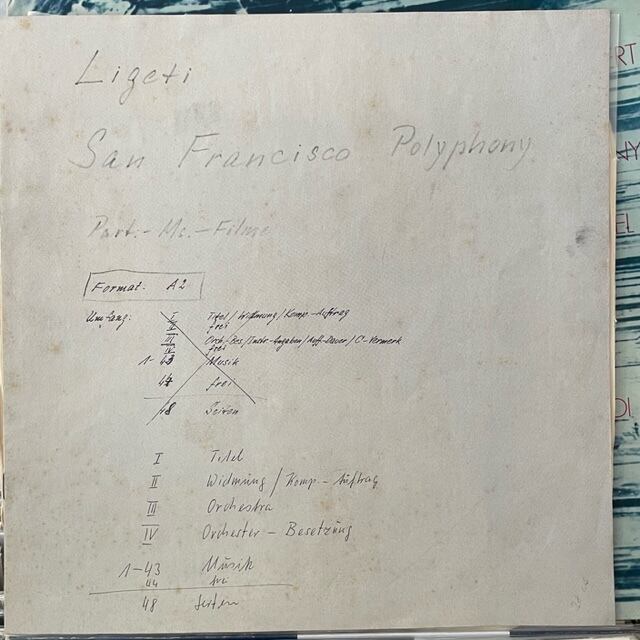 Ligeti
San Francisco Polyphony
Part.- Ms.-Filme
Format: A2
Umfang: I Titel / Widmung / Komp.-Auftrag
II frei
III Orch.-Bes. / Instr.-Angaben / Auff.-Dauer / C-Vermerk
IV frei
1-43 Musik
44 frei
48 Seiten
I Titel
II Widmung / Komp.-Auftrag
III Orchestra
IV Orchester-Besetzung
1-43 Musik
44 frei
48 Seiten
RT
NY
EL
DI